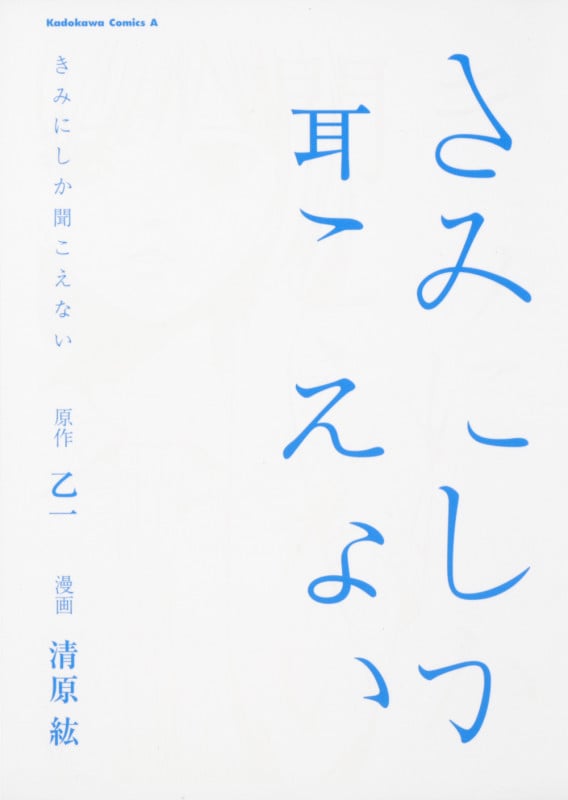 Kadokawa Comics A
きみにしか
聞こえない
きみにしか聞こえない 原作 乙一 漫画 清原 紘